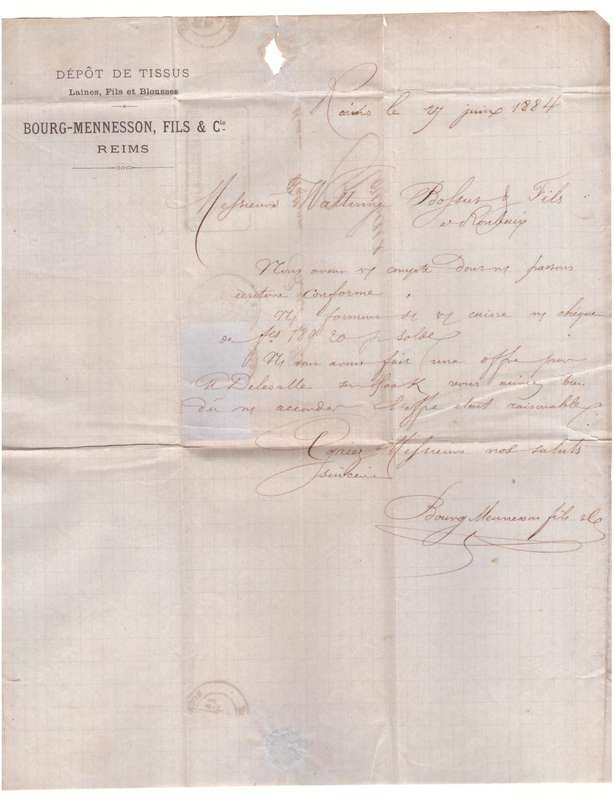 DÉPÔT DE TISSUS
Laines, Fils et Blousses
BOURG-MENNESSON, FILS & Cie
REIMS
Reims le 27 juin 1884
Messieurs Wattinne Bossut & Fils
à Roubaix
Nous avons vs compte dont ns passons
écriture conforme.
Ns de vs caisse ns chèque
de fcs 189 20 pr solde
Ns vous avons fait une offre pour
Delesalle vous auriez bien
dû ns accorder l'offre était raisonnable
Agréez Messieurs nos saluts
sincères
Bourg Mennesson fils & Ce